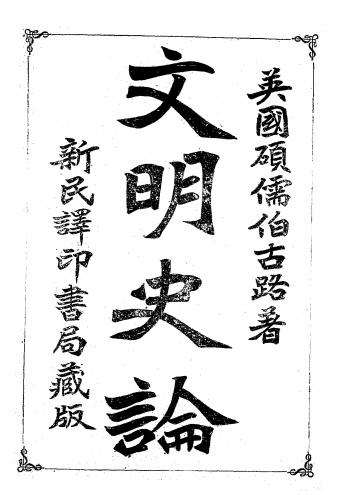 英國碩儒伯古路著
文明史論
新民譯印書局藏版